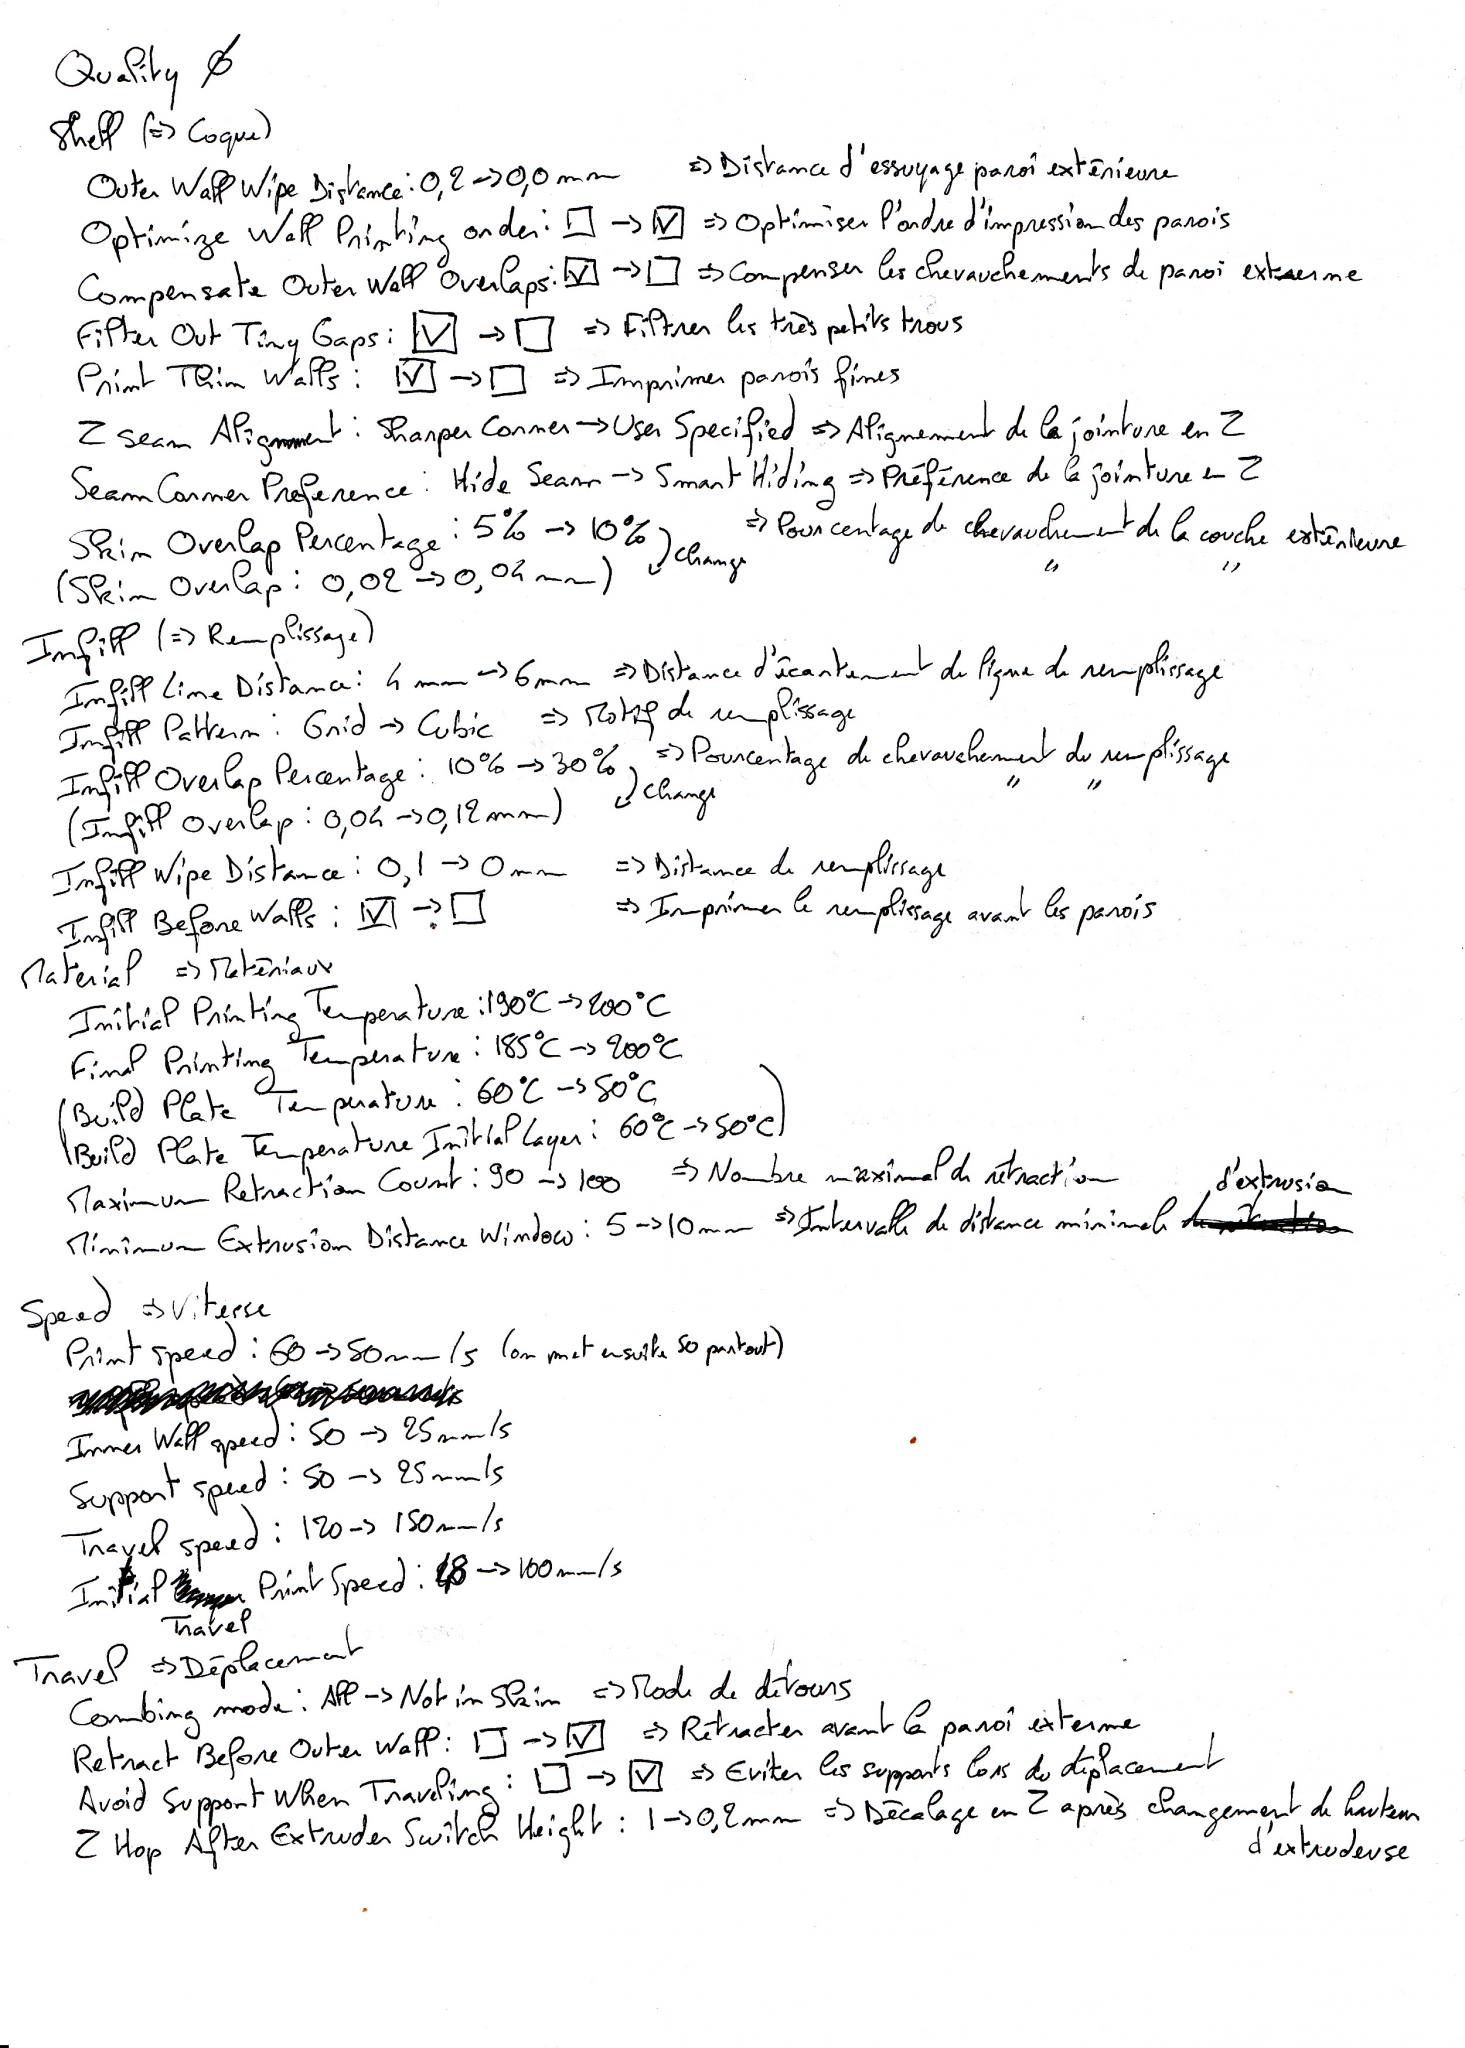 Quality ∅
Shell (=> Coque)
Outer Wall Wipe Distance : 0,2 -> 0,0 mm => Distance d'essuyage paroi extérieure
Optimize Wall Printing order : ☐ -> ☑ => Optimiser l'ordre d'impression des parois
Compensate Outer Wall Overlaps : ☑ -> ☐ => Compenser les chevauchements de paroi externe
Filter Out Tiny Gaps : ☑ -> ☐ => Filtrer les très petits trous
Print Thin Walls : ☑ -> ☐ => Imprimer parois fines
Z seam Alignment : Sharper Corner -> User Specified => Alignement de la jointure en Z
Seam Corner Preference : Hide Seam -> Smart Hiding => Préférence de la jointure en Z
Skin Overlap Percentage : 5% -> 10% => Pourcentage de chevauchement de la couche extérieure
change
(Skin Overlap : 0,02 -> 0,04 mm) " "
Infill (=> Remplissage)
Infill Line Distance : 4 mm -> 6 mm => Distance d'écartement de ligne de remplissage
Infill Pattern : Grid -> Cubic => Motif de remplissage
Infill Overlap Percentage : 10% -> 30% => Pourcentage de chevauchement du remplissage
change " "
(Infill Overlap : 0,04 -> 0,12 mm)
Infill Wipe Distance : 0,1 -> 0 mm => Distance de remplissage
Infill Before Walls : ☑ -> ☐ => Imprimer le remplissage avant les parois
Material => Matériaux
Initial Printing Temperature : 190°C -> 200°C
Final Printing Temperature : 185°C -> 200°C
(Build Plate Temperature : 60°C -> 50°C
Build Plate Temperature Initial Layer : 60°C -> 50°C)
Maximum Retraction Count : 90 -> 100 => Nombre maximal de rétraction
d'extrusion
Minimum Extrusion Distance Window : 5 -> 10 mm => Intervalle de distance minimale
Speed => Vitesse
Print speed : 60 -> 50 mm/s (on met ensuite 50 partout)
Inner Wall speed : 50 -> 25 mm/s
Support speed : 50 -> 25 mm/s
Travel speed : 120 -> 150 mm/s
Initial Print Speed : -> 100 mm/s
Travel
Travel => Déplacement
Combing mode : All -> Not in Skin => Mode de détours
Retract Before Outer Wall : ☐ -> ☑ => Rétracter avant la paroi externe
Avoid Support When Traveling : ☐ -> ☑ => Eviter les supports lors du déplacement
Z Hop After Extruder Switch Height : 1 -> 0,2 mm => Décalage en Z après changement de hauteur
d'extrudeuse